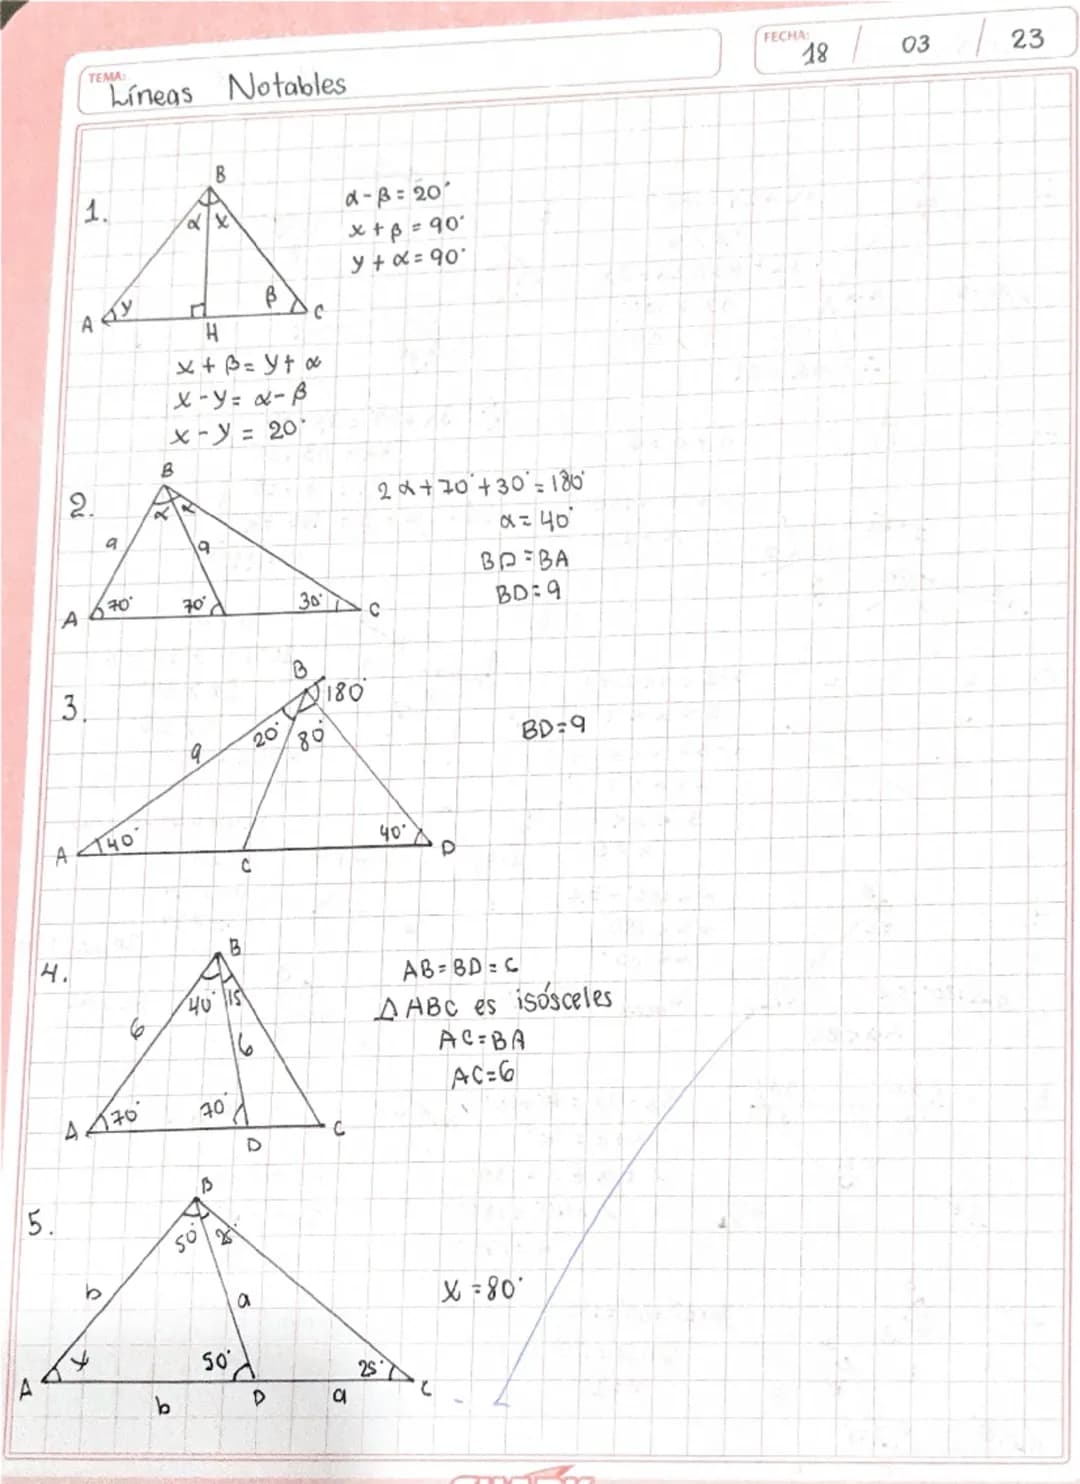 TEMA: Líneas Notables
FECHA: 18 / 03 / 23
1.
B
α x
y β
A H C
α-β=20°
x+β=90°
y+α=90°
x+β=y+α
x-y=α-β
x-y=20°
2.
B
α α
9 9
70° 70° 30°
A C
2α+70°+30°=180°
α=40°
BD=BA
BD=9
3.
B
180°
20° 80°
9
40° 40°
A C D
BD=9
4.
B
40° 15
6 6
70° 70°
A D C
AB=BD=6
Δ ABC es isósceles
AC=BA
AC=6
5.
B
50° 25°
b a
x 50° 25°
A b D a C
X=80°